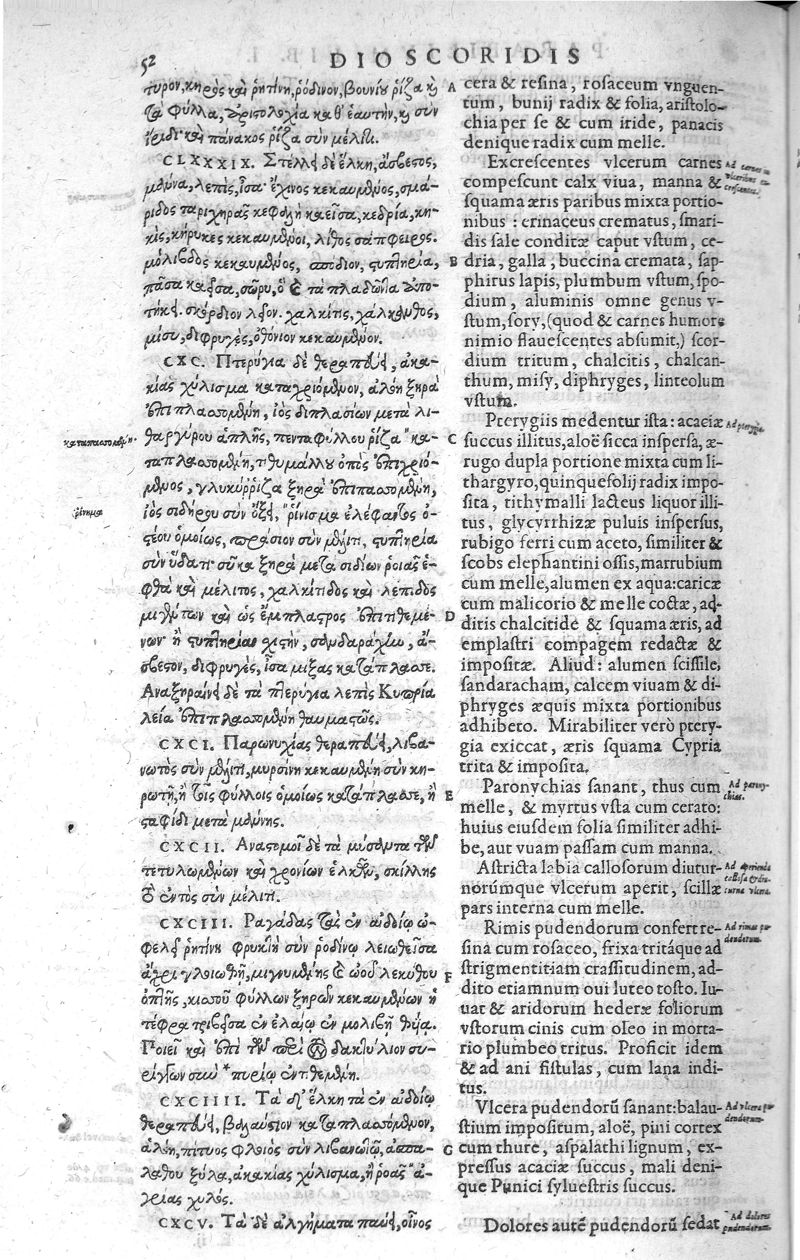 52
DIOSCORIDIS
τυρον, κηρὸς καὶ ῥητίνη, ῥόδινον, βουνίου ῥίζα καὶ
τὰ φύλλα, ἀριστολοχία καθ' ἑαυτὴν, καὶ σὺν
ἴριδι καὶ πάνακος ῥίζα σὺν μέλιτι.
CLXXXIX. Στέλλει δὲ ἕλκη, ἄσβεστος,
μάννα, λεπὶς, ἴσα· ἐχῖνος κεκαυμένος, σμα-
ρίδος ταριχηρᾶς κεφαλὴ καεῖσα, κεδρία, κη-
κὶς, κήρυκες κεκαυμένοι, λίθος σάπφειρος.
μόλιβδος κεκαυμένος, σπόδιον, στυπτηρία,
πᾶσα καεῖσα, σῶρυ, ὃ καὶ τὰ πλαδῶντα ἀπο-
τήκει. σκόρδιον λεῖον. χαλκίτις, χάλκανθος,
μίσυ, διφρυγὲς, ὀθόνιον κεκαυμένον.
CXC. Πτερύγια δὲ θεραπεύει, ἀκα-
κίας χύλισμα καταχριόμενον, ἀλόη ξηρὰ
ἐπιπλασσομένη, ἰὸς διπλασίων μετὰ λι-
θαργύρου ἁπλῆς, πενταφύλλου ῥίζα "κα-
ταπλασσομένη, τιθυμάλλου ὀπὸς ἐπιχριό-
μενος, γλυκύρριζα ξηρὰ ἐπιπασσομένη,
ἰὸς σιδήρου σὺν ὄξει, "ῥίνισμα ἐλέφαντος ὀ-
στέου ὁμοίως, πράσιον σὺν μέλιτι, στυπτηρία
σὺν ὕδατι· σῦκα ξηρὰ μετὰ σιδίων ῥοιᾶς ἑ-
φθὰ καὶ μέλιτος, χαλκίτιδος καὶ λεπίδος
μιγέντων καὶ ὡς ἔμπλαστρος ἐπιτιθεμέ-
νων· ἢ στυπτηρίαν σχιστὴν, σανδαράχην, ἄ-
σβεστον, διφρυγὲς, ἴσα μίξας κατάπλασσε.
Ἀναξηραίνει δὲ τὰ πτερύγια λεπὶς Κυπρία
λεία ἐπιπλασσομένη θαυμαστῶς.
CXCI. Παρωνυχίας θεραπεύει, λιβα-
νωτὸς σὺν μέλιτι, μυρσίνη κεκαυμένη σὺν κη-
ρωτῇ, ἢ τοῖς φύλλοις ὁμοίως κατάπλασσε, ἢ
σταφίδι μετὰ μάννης.
CXCII. Ἀναστομοῖ δὲ τὰ μύσαντα τῶν
τετυλωμένων καὶ χρονίων ἑλκῶν, σκίλλης
τὸ ἐντὸς σὺν μέλιτι.
CXCIII. Ῥαγάδας τὰς ἐν αἰδοίῳ ὠ-
φελεῖ ῥητίνη φρυκτὴ σὺν ῥοδίνῳ λειωθεῖσα
ἄχρι γλοιωθῇ, μιγνυμένης καὶ ὠοῦ λεκύθου
ὀπτῆς, κισσοῦ φύλλων ξηρῶν κεκαυμένων ἡ
τέφρα τριβεῖσα ἐν ἐλαίῳ ἐν μολιβῇ θυΐᾳ.
Ποιεῖ καὶ ἐπὶ τῶν περὶ τὸν δακτύλιον συ-
ρίγγων σὺν *πυρίῳ ἐντιθεμένη.
CXCIIII. Τὰ δ' ἕλκη τὰ ἐν αἰδοίῳ
θεραπεύει, βαλαύστιον καταπλασσόμενον,
ἀλόη, πίτυος φλοιὸς σὺν λιβανωτῷ, ἀσπα-
λάθου ξύλα, ἀκακίας χύλισμα, ἢ ῥοᾶς "ἀ-
γρίας χυλός.
CXCV. Τὰ δὲ ἀλγήματα παύει, οἶνος
καταπασσομένη.
ῥίνημα
A
B
C
D
E
F
G
cera & resina, rosaceum vnguen-
tum, bunij radix & folia, aristolo-
chia per se & cum iride, panacis
denique radix cum melle.
Excrescentes vlcerum carnes
compescunt calx viua, manna &
squama æris paribus mixta portio-
nibus: erinaceus crematus, smari-
dis sale conditæ caput vstum, ce-
dria, galla, buccina cremata, sap-
phirus lapis, plumbum vstum, spo-
dium, aluminis omne genus v-
stum, sory, (quod & carnes humore
nimio flauescentes absumit,) scor-
dium tritum, chalcitis, chalcan-
thum, misy, diphryges, linteolum
vstum.
Pterygiis medentur ista: acaciæ
succus illitus, aloë sicca inspersa, æ-
rugo dupla portione mixta cum li-
thargyro, quinquefolij radix impo-
sita, tithymalli lacteus liquor illi-
tus, glycyrrhizæ puluis inspersus,
rubigo ferri cum aceto, similiter &
scobs elephantini ossis, marrubium
cum melle, alumen ex aqua: caricæ
cum malicorio & melle coctæ, ad-
ditis chalcitide & squama æris, ad
emplastri compagem redactæ &
impositæ. Aliud: alumen scissile,
sandaracham, calcem viuam & di-
phryges æquis mixta portionibus
adhibeto. Mirabiliter verò ptery-
gia exiccat, æris squama Cypria
trita & imposita.
Paronychias sanant, thus cum
melle, & myrtus vsta cum cerato:
huius eiusdem folia similiter adhi-
be, aut vuam passam cum manna.
Astricta labia callosorum diutur-
norúmque vlcerum aperit, scillæ
pars interna cum melle.
Rimis pudendorum confert re-
sina cum rosaceo, frixa tritáque ad
strigmentitiam crassitudinem, ad-
dito etiamnum oui luteo tosto. Iu-
uat & aridorum hederæ foliorum
vstorum cinis cum oleo in morta-
rio plumbeo tritus. Proficit idem
& ad ani fistulas, cum lana indi-
tus.
Vlcera pudendorũ sanant: balau-
stium impositum, aloë, pini cortex
cum thure, aspalathi lignum, ex-
pressus acaciæ succus, mali deni-
que Punici syluestris succus.
Dolores autẽ pudendorũ sedat
Ad carnes in
vlceribus ex-
crescentes.
Ad pterygia.
Ad parony-
chias.
Ad aperienda
callosa & diu-
turna vlcera.
Ad rimas pu-
dendorum.
Ad vlcera pu-
dendorum.
Ad dolores
pudendorum.